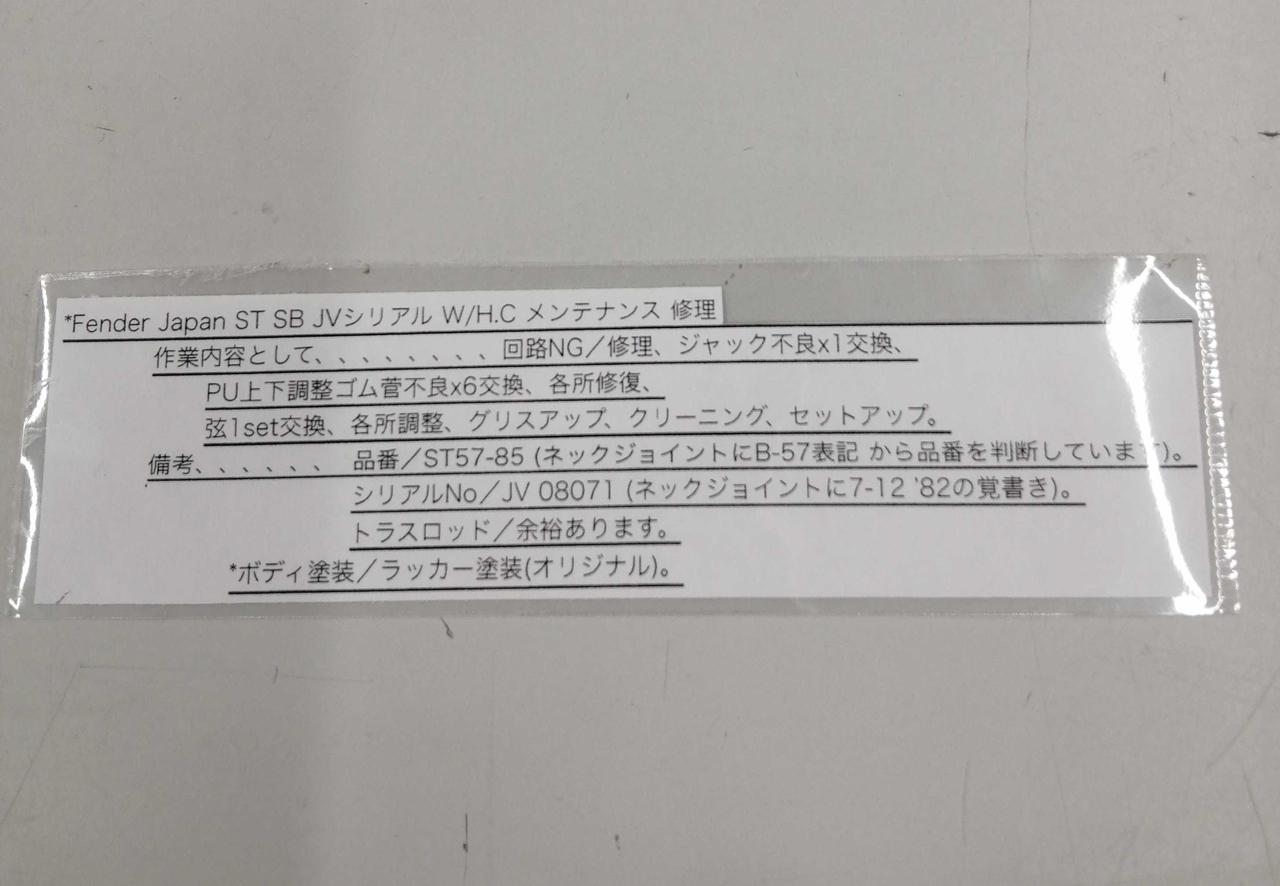 *Fender Japan ST SB JVシリアル W/H.C メンテナンス 修理
作業内容として、、、、、、、、回路NG／修理、ジャック不良x1交換、
PU上下調整ゴム菅不良x6交換、各所修復、
弦1set交換、各所調整、グリスアップ、クリーニング、セットアップ。
備考、、、、、、 品番／ST57-85 (ネックジョイントにB-57表記 から品番を判断しています)。
シリアルNo／JV 08071 (ネックジョイントに7-12 '82の覚書き)。
トラスロッド／余裕あります。
*ボディ塗装／ラッカー塗装(オリジナル)。